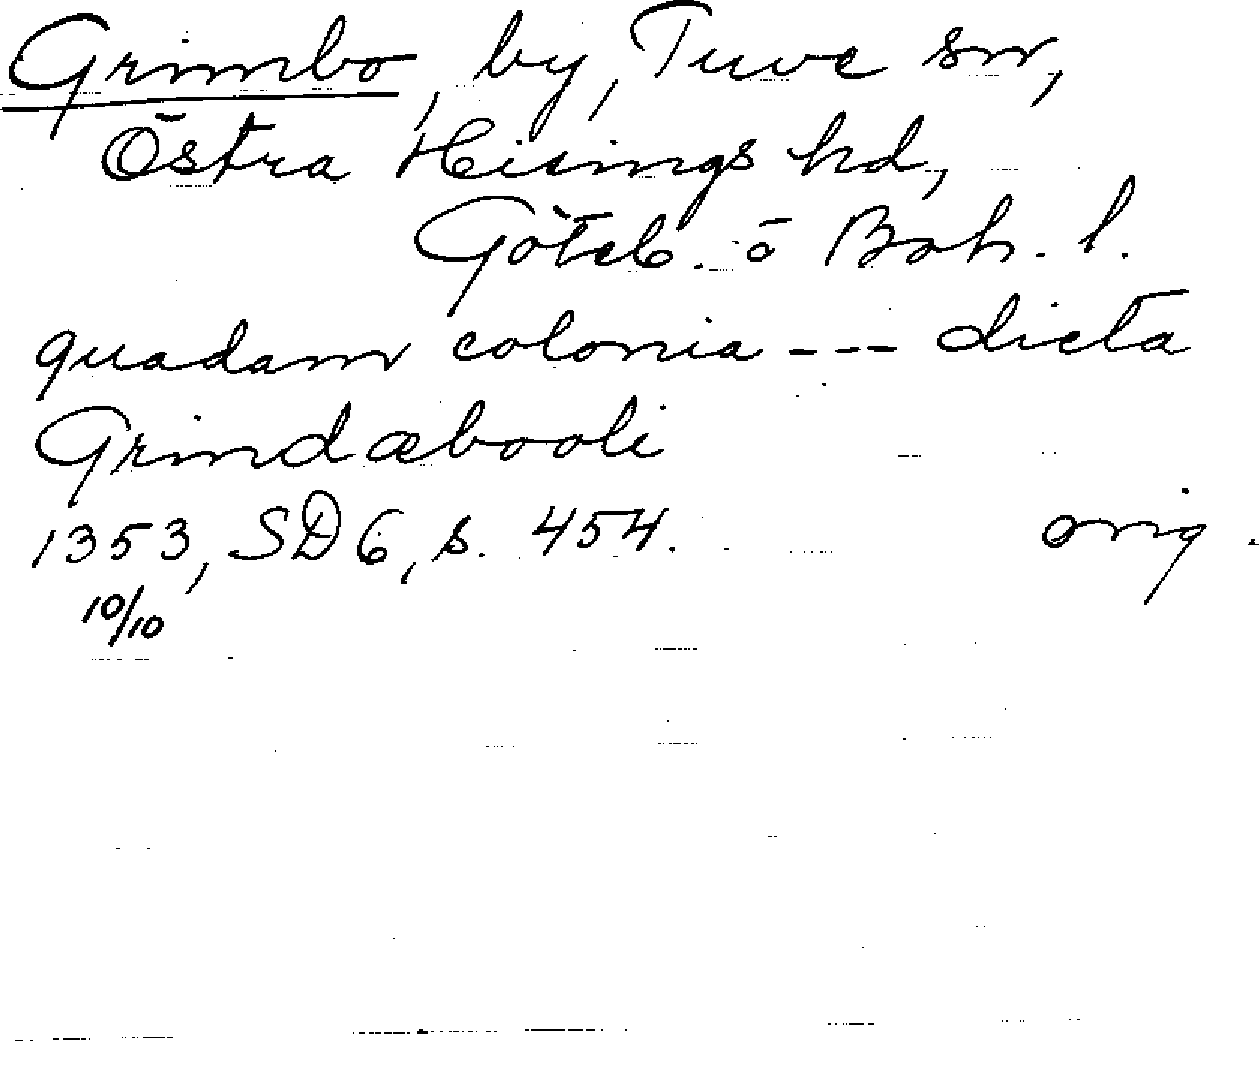 Grimbo, by, Tuve sn,
Östra Hisings hd,
Göteb. o Boh. l.
quadam colonia --- dicta
Grindæbooli
1353, SD 6, s. 454. orig.
10/10